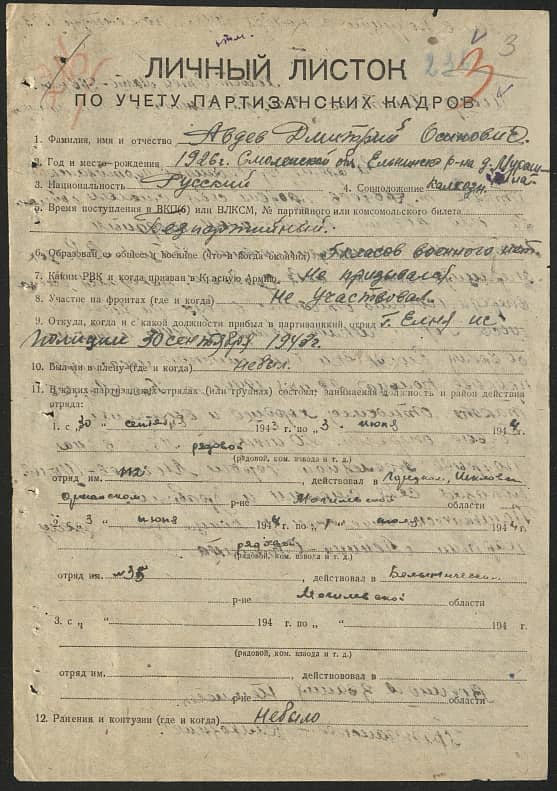 3
ЛИЧНЫЙ ЛИСТОК
ПО УЧЕТУ ПАРТИЗАНСКИХ КАДРОВ
1. Фамилия, имя и отчество Авдев Дмитрий Осипович.
2. Год и место рождения 1926 г. Смоленской Ельнинско р-на д.
3. Национальность Русский 4. Соцположение колхозн.
5. Время поступления в ВКП(б) или ВЛКСМ, № партийного или комсомольского билета
Безпартийный.
6. Образован е общее и военное (что и когда окончил) 5 класов военного нет
7. Каким РВК и когда призван в Красную Армию Не призывался
8. Участие на фронтах (где и когда) Не участвовал
9. Откуда, когда и с какой должности прибыл в партизанский, отряд г. Елня из
полиции 30 сентября 1943 г.
10. Был ли в плену (где и когда) небыл.
11. В каких партизанских отрядах (или группах) состоял; занимаемая должность и район действия
отряда:
1. с „30 „ сентября 1943 г. по „3. июня 1944 г.
рядовой
(рядовой, ком. взвода и т. д.)
отряд им. , действовал в
Оршанском р-не Могилевской области
3 „ июня 1944 г. по „ „ 1944 г.
рядовой
(рядовой, ком. взвода и т. д.)
отряд им. №35 , действовал в Белыническ
р-не Могилевской области
3. с „ “ 194 г. по „ “ 194 г.
(рядовой, ком. взвода и т. д.)
отряд им. , действововал в
р-не области
12. Ранения и контузии (где и когда) небыло